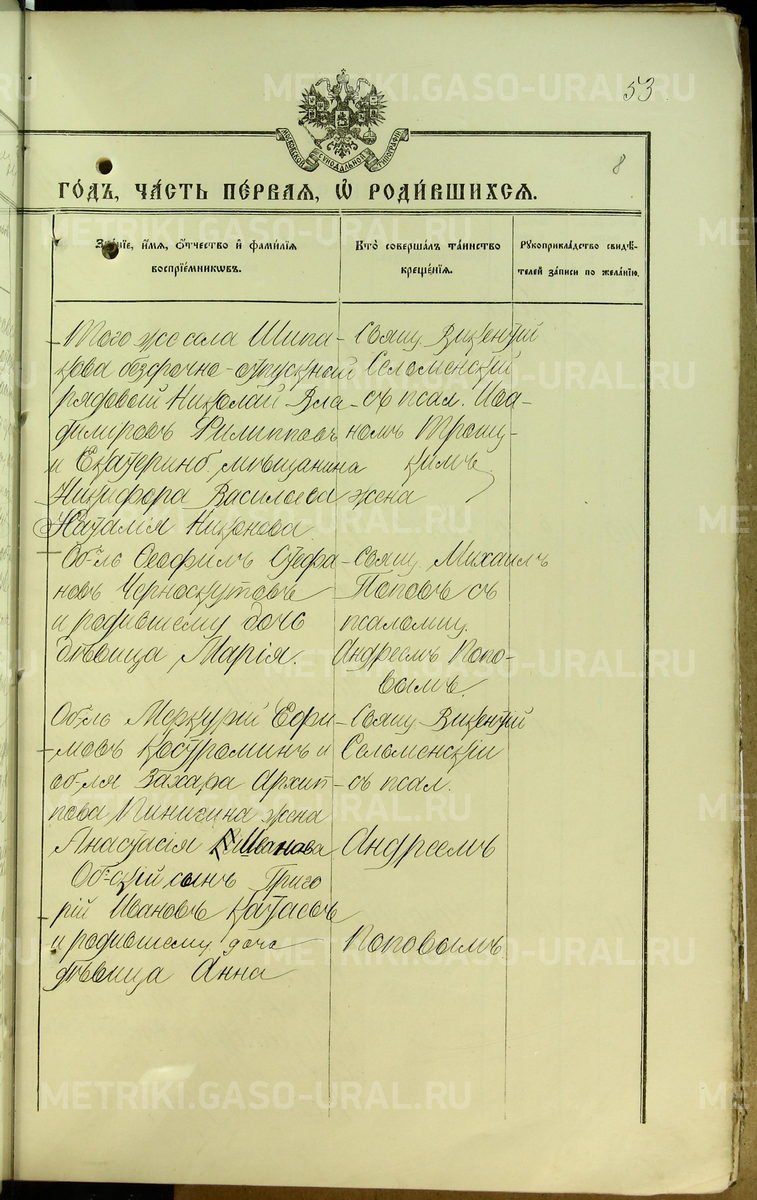 53
8
МОСКОВСКОЙ СѴНОДАЛЬНОЙ ТИПОГРАФІИ
ГО́ДЪ, ЧА́СТЬ ПЕ́РВАЯ, Ѽ РОДИ́ВШИХСЯ.
Зва́ніе, и́мя, о́тчество и҆ фами́лія
воспріе́мниковъ.
Кто̀ совершалъ та́инство
креще́нія.
Рꙋкоприкла́дство свидѣ́-
телей за́писи по жела́нію.
Того же села Шипа-
кова безсрочно-отпускный
рядовой Николай Вла-
димiровъ Филипповъ
и Екатеринб. мѣщанина
Никифора Васильева жена
Наталiя Никонова
Свящ. Викентiй
Селоменскiй
съ псал. Иоа-
номъ Трошу-
кимъ
Об-ль Ѳеофилъ Стефа-
новъ Черноскутовъ
и родившему дочь
дѣвица Марiя.
Свящ. Михаилъ
Поповъ съ
псаломщ.
Андреемъ Попо-
вымъ
Об-ль Меркурiй Ефи-
мовъ Костроминъ и
об-ля Захара Архип-
пова Пинигина жена
Анастасiя Иванова
Свящ. Викентiй
Селоменскiй
съ псал.
Андреемъ
Об-скiй сынъ Григо
рiй Ивановъ Катаевъ
и родившему дочь
дѣвица Анна
Поповымъ
METRIKI.GASO-URAL.RU